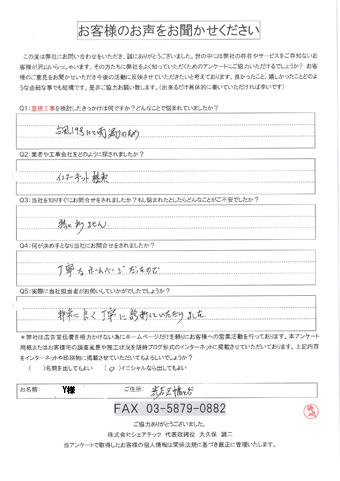 お客様のお声をお聞かせください
この度は弊社にお問い合わせをいただき、誠にありがとうございました。世の中には弊社の存在やサービスをご存知ないお
客様が沢山いらっしゃいます。その方たちに弊社をよく知っていただくためのアンケートにご協力いただけるでしょうか? お客
様のご意見をお聞かせいただき今後の活動に反映させていただきたいと考えております。良かったこと、嬉しかったことどのよ
うな些細な事でも結構です。是非ご協力お願い致します。(出来るだけ具体的に書いていただければ幸いです)
Q1:屋根工事を検討したきっかけは何ですか?どんなことで悩まれていましたか?
台風19号にて雨漏りのため
Q2:業者や工事会社をどのように探されましたか?
インターネット検索
Q3:当社を知りすぐにお問合せをされましたか?もし悩まれたとしたらどんなことがご不安でしたか?
特にありません
Q4:何が決め手となり当社にお問合せをしましたか?
丁寧なホームページだったので
Q5:実際に当社担当者がお伺いしていかがでしたでしょうか?
非常に良く丁寧に診断していただけました
*弊社は広告宣伝費を極力かけない為にホームページだけを頼りにお客様への営業活動を行っております。本アンケート
用紙またはお客様宅の調査風景や施工状況を随時ブログ形式でインターネットに掲載させていただいております。上記内容
をインターネットや印刷物に掲載させていただいてもよろしいでしょうか?
( )名前を出してもよい (○)イニシャルなら出してもよい
お名前: Y様 ご住所:
FAX 03-5879-0882
ご協力ありがとうございました。
株式会社シェアテック 代表取締役 大久保 誠二
当アンケートで取得したお客様の個人情報は関係法規に基づき厳正に管理いたします。